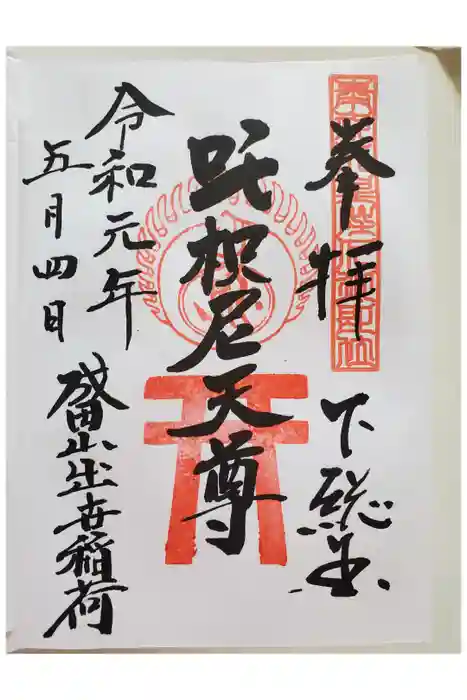 奉拝
下総国
吒枳尼天尊
令和元年
五月四日
成田山出世稲荷